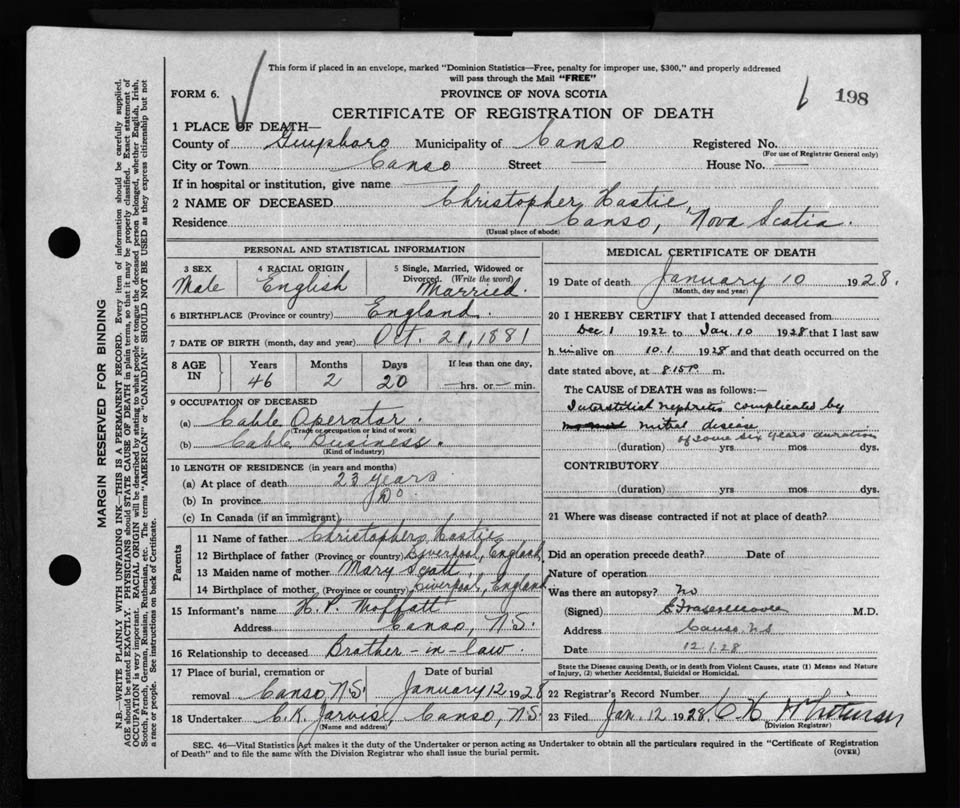 This form if placed in an envelope, marked "Dominion Statistics—Free, penalty for improper use, $300," and properly addressed
will pass through the Mail "FREE"
FORM 6.
PROVINCE OF NOVA SCOTIA
6 198
CERTIFICATE OF REGISTRATION OF DEATH
1 PLACE OF DEATH—
County of Guysboro Municipality of Canso Registered No.
(For use of Registrar General only)
City or Town Canso Street — House No. —
If in hospital or institution, give name —
2 NAME OF DECEASED Christopher Hastie,
Residence Canso, Nova Scotia.
(Usual place of abode)
PERSONAL AND STATISTICAL INFORMATION
3 SEX Male
4 RACIAL ORIGIN English
5 Single, Married, Widowed or Divorced. (Write the word) Married.
6 BIRTHPLACE (Province or country) England.
7 DATE OF BIRTH (month, day and year) Oct. 21, 1881
8 AGE IN
Years Months Days If less than one day,
46 2 20 —hrs. or — min.
9 OCCUPATION OF DECEASED
(a) Cable Operator.
(Trade or occupation or kind of work)
(b) Cable Business.
(Kind of industry)
10 LENGTH OF RESIDENCE (in years and months)
(a) At place of death 23 years
(b) In province Do
(c) In Canada (if an immigrant)
Parents
11 Name of father Christopher Hastie
12 Birthplace of father (Province or country) Liverpool, England
13 Maiden name of mother Mary Scott,
14 Birthplace of mother, (Province or country) Liverpool, England
15 Informant's name H. P. Moffatt
Address Canso, N.S.
16 Relationship to deceased Brother-in-law.
17 Place of burial, cremation or removal Canso, N.S.
Date of burial January 12 1928
18 Undertaker C. K. Jarvis, Canso, N.S.
(Name and address)
MEDICAL CERTIFICATE OF DEATH
19 Date of death January 10 1928.
(Month, day and year)
20 I HEREBY CERTIFY that I attended deceased from
Dec 1 1922 to Jan. 10 1928 that I last saw
h im alive on 10.1 1928 and that death occurred on the
date stated above, at 8.15 P. m.
The CAUSE of DEATH was as follows:—
Interstitial nephritis complicated by
mitral disease
of some six years duration
(duration) yrs mos dys.
CONTRIBUTORY
(duration) yrs. mos. dys.
21 Where was disease contracted if not at place of death?
Did an operation precede death? Date of
Nature of operation
Was there an autopsy? No
(Signed) M.D.
Address Canso NS
Date 12.1.28
State the Disease causing Death, or in death from Violent Causes, state (1) Means and Nature
of Injury, (2) whether Accidental, Suicidal or Homicidal.
22 Registrar's Record Number
23 Filed Jan. 12 1928.
(Division Registrar)
SEC. 46—Vital Statistics Act makes it the duty of the Undertaker or person acting as Undertaker to obtain all the particulars required in the "Certificate of Registration
of Death" and to file the same with the Division Registrar who shall issue the burial permit.
(OVER)
MARGIN RESERVED FOR BINDING
N.B.—WRITE PLAINLY WITH UNFADING INK—THIS IS A PERMANENT RECORD. Every item of information should be carefully supplied.
AGE should be stated EXACTLY. PHYSICIANS should STATE CAUSE OF DEATH in plain terms, so that it may be properly classified. Exact statement of
OCCUPATION is very important. RACIAL ORIGIN will be described by stating to what people or tongue the deceased person belonged, whether English, Irish,
Scotch, French, German, Russian, Ruthenian, etc. The terms "AMERICAN" or "CANADIAN" SHOULD NOT BE USED as they express citizenship but not
a race or people. See instructions on back of Certificate.